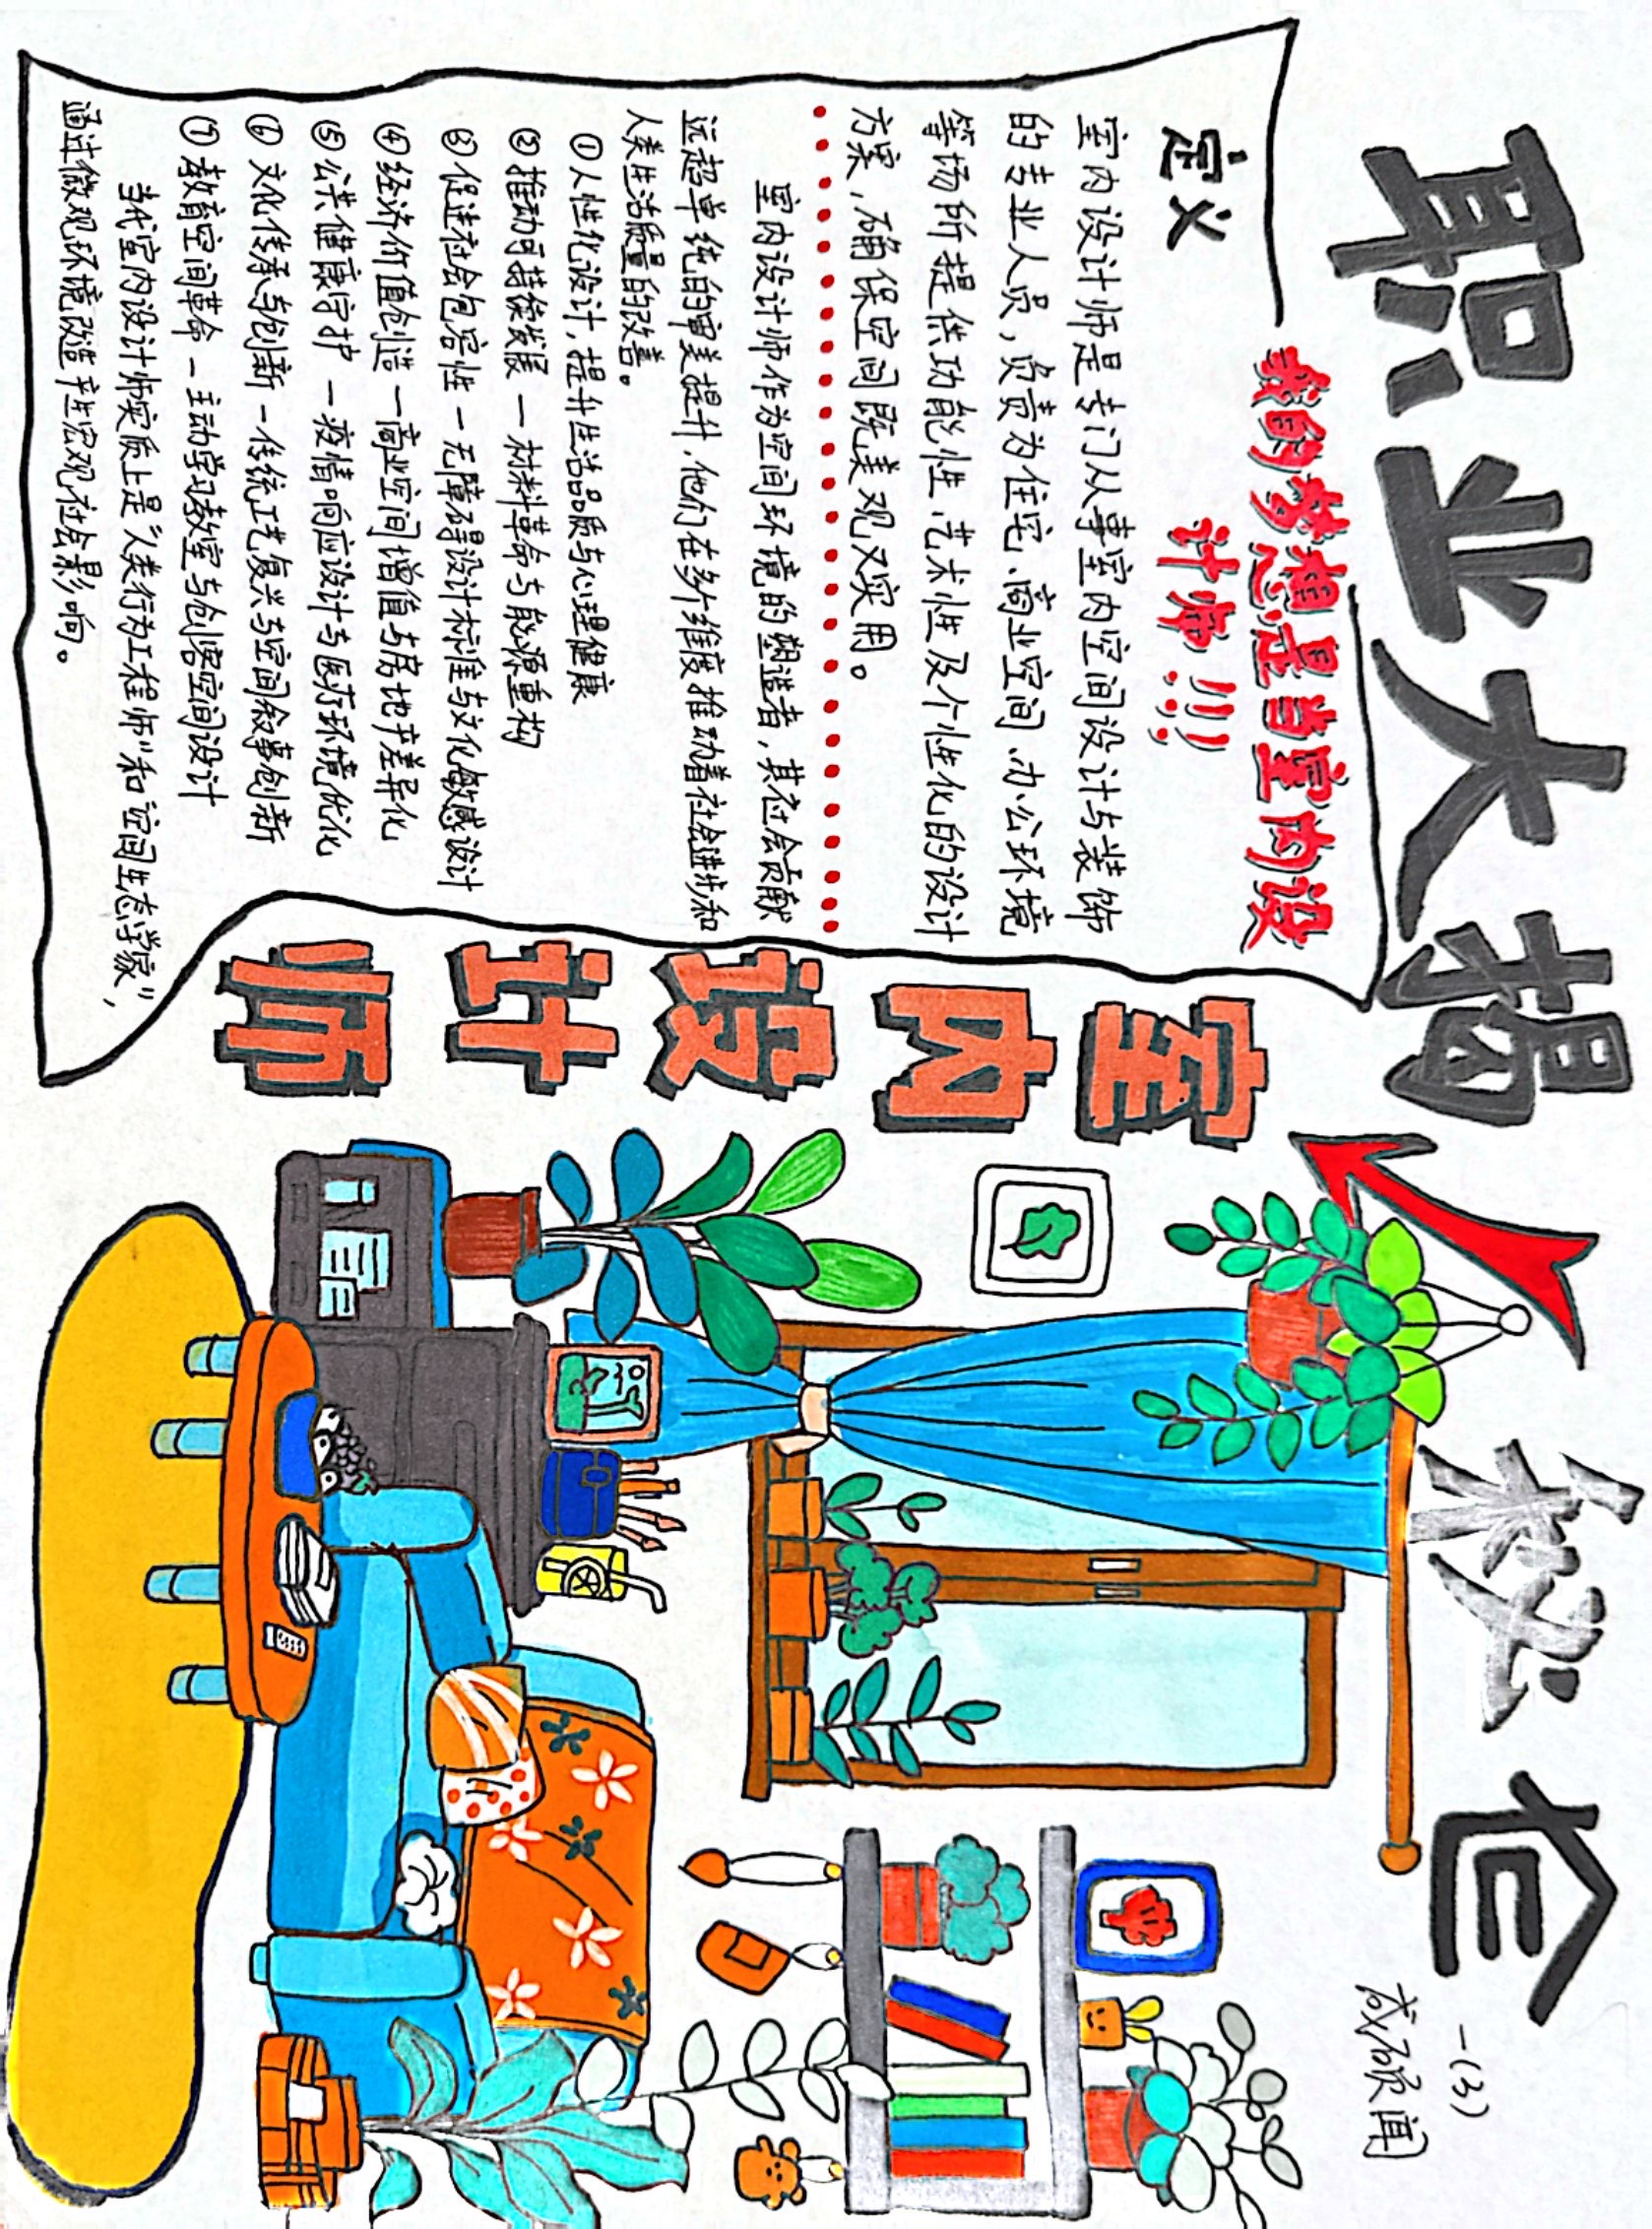 职业大揭秘
一(3)
戚硕闻
我的梦想是当室内设
计师!!!
定义
室内设计师是专门从事室内空间设计与装饰
的专业人员，负责为住宅、商业空间、办公环境
等场所提供功能性、艺术性及个性化的设计
方案，确保空间既美观又实用。
室内设计师作为空间环境的塑造者，其社会贡献
远超单纯的审美提升，他们在多个维度推动着社会进步和
人类生活质量的改善。
①人性化设计，提升生活品质与心理健康
②推动可持续发展－材料革命与能源重构
③促进社会包容性－无障碍设计标准与文化敏感设计
④经济价值创造－商业空间增值与房地产差异化
⑤公共健康守护－疫情响应设计与医疗环境优化
⑥文化传承与创新－传统工艺复兴与空间叙事创新
⑦教育空间革命－主动学习教室与创客空间设计
当代室内设计师实质上是“人类行为工程师”和“空间生态学家”，
通过微观环境改造产生宏观社会影响。
室内设计师